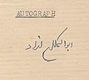 AUTOGRAPH
ابوالکلام آزاد